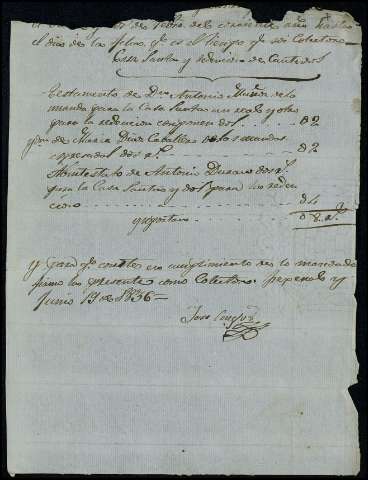 de del corriente año hasta
el dia de la fecha q.e es el tiempo q.e soy Colector
Casa Santa y redencion de Cautivos
Testamento de Dn Antonio Muñoz de la
manda para la Casa Santa un real y otro
para la redencion componen dos 02
Yd. de Maria Diaz Caballero de las mandas
expresadas dos r.s 02
Abintestato de Antonio Durano dos r.s
para la Casa Santa y dos para la reden
cion 04
ymportan 08 r.s
Y para q.e conste en cumplimiento de lo mandado
firmo la presente como Colector
Junio 19 de 1836
Jose